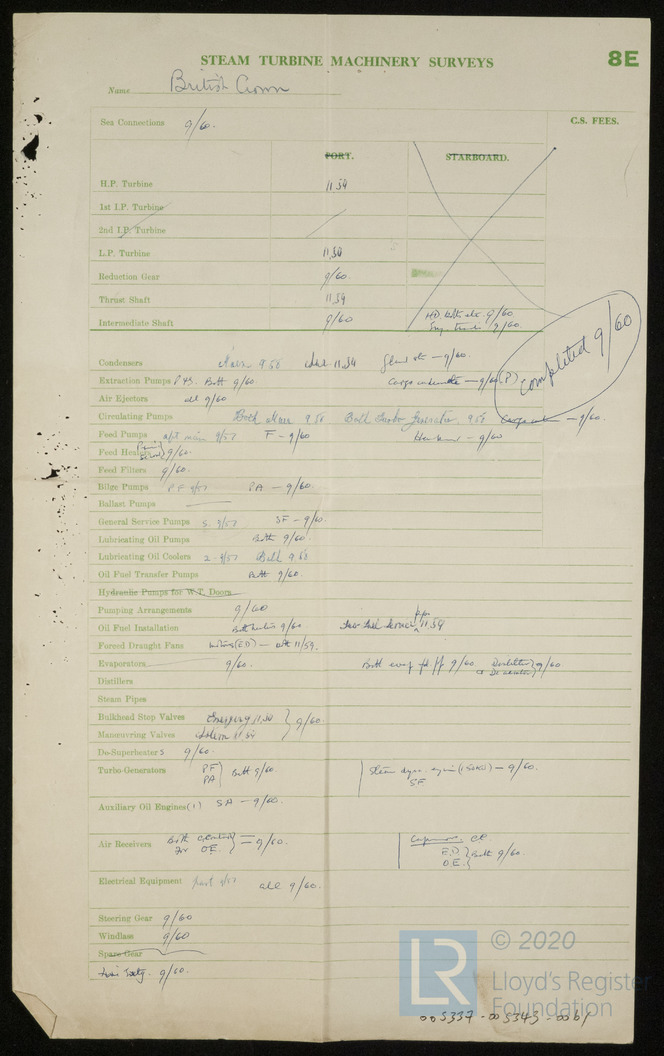 8E
STEAM TURBINE MACHINERY SURVEYS
Name British Crown
Sea Connections 9/60.
C.S. FEES.
PORT. STARBOARD.
H.P. Turbine 11.59
1st I.P. Turbine
2nd I.P. Turbine
L.P. Turbine 11.58
Reduction Gear 9/60
Thrust Shaft 11.59
Intermediate Shaft 9/60 9/60
9/60.
completed 9/60
Condensers Main 9.58 11.59 Gland 9/60.
Extraction Pumps Both 9/60 Cargo 9/60 (P)
Air Ejectors all 9/60
Circulating Pumps Both Main 9.58 Both Turbo Generator 9.58 9/60.
Feed Pumps aft main 9/57 F - 9/60 9/60
Feed Heaters 9/60.
Feed Filters 9/60.
Bilge Pumps PF 9/57 PA - 9/60.
Ballast Pumps
General Service Pumps S. 9/57 SF - 9/60.
Lubricating Oil Pumps Both 9/60.
Lubricating Oil Coolers 2. 9/57 Both 9.58
Oil Fuel Transfer Pumps Both 9/60.
Hydraulic Pumps for W.T. Doors
Pumping Arrangements 9/60
Oil Fuel Installation 9/60 11/59
Forced Draught Fans both 11/59.
Evaporators 9/60. Both evap fd pp 9/60. Distiller 9/60
Distillers
Steam Pipes
Bulkhead Stop Valves } 9/60.
Manœuvring Valves
De-Superheaters 9/60.
Turbo-Generators PF PA } Both 9/60. Steam 9/60. SF
Auxiliary Oil Engines (1) SA - 9/60.
Air Receivers Both for O.E. } - 9/60. O.E. } Both 9/60.
Electrical Equipment part 9/57 all 9/60.
Steering Gear 9/60
Windlass 9/60
Spare Gear
9/60.
LR
© 2020
Lloyd's Register
Foundation
005337-005343-0061